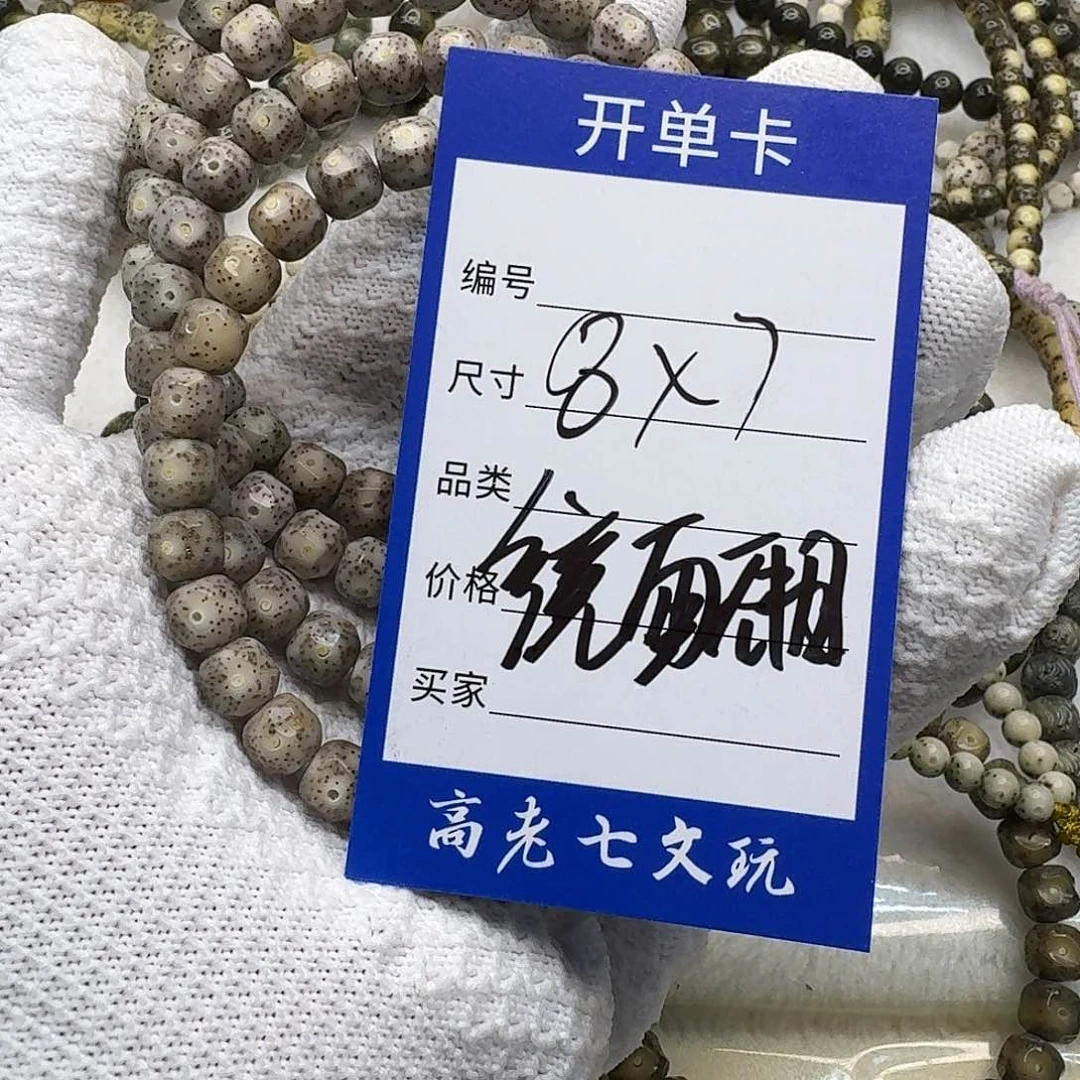 开单卡
编号
尺寸 8×7
品类
价格
买家
高老七文玩